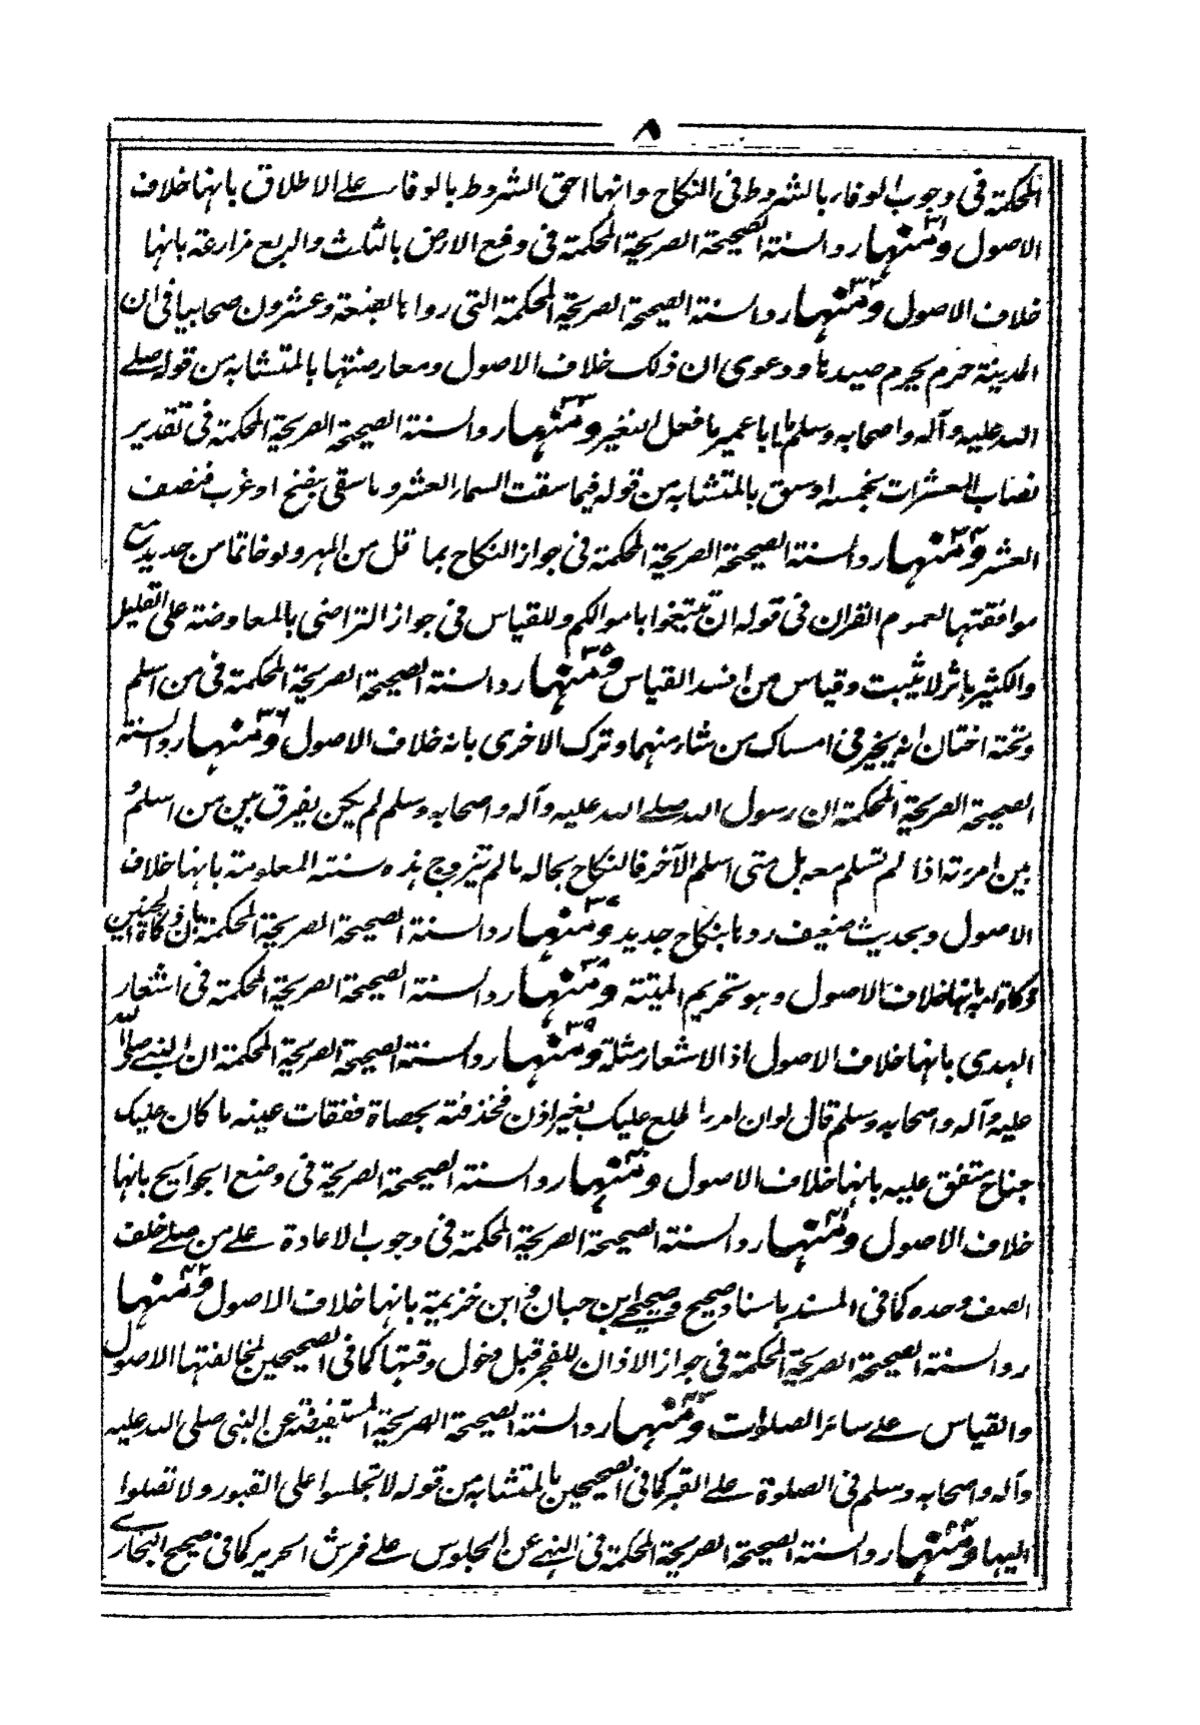 ٨
المحكمة فى وجوب الوفاء بالشروط فى النكاح وانها احق الشروط بالوفاء على الاطلاق بانها خلاف
الاصول ومنها ٣١ رد السنة الصحيحة الصريحة المحكمة فى دفع الارض بالثلث والربع مزارعة بانها
خلاف الاصول ومنها ٣٢ رد السنة الصحيحة الصريحة المحكمة التى رواها بضعة وعشرون صحابيا فى ان
المدينة حرم يحرم صيدها ودعوى ان ذلك خلاف الاصول ومعارضتها بالمتشابه من قوله صلى
الله عليه وآله واصحابه وسلم يا ابا عمير ما فعل النغير ومنها ٣٣ رد السنة الصحيحة الصريحة المحكمة فى تقدير
نصاب المعشرات بخمسة اوسق بالمتشابه من قوله فيما سقت السماء العشر وما سقى بنضح او غرب فنصف
العشر ومنها ٣٤ رد السنة الصحيحة الصريحة المحكمة فى جواز النكاح بما قل من المهر ولو خاتما من حديد مع
موافقتها لعموم القران فى قوله ان تبتغوا باموالكم وللقياس فى جواز التراضى بالمعاوضة على القليل
والكثير باثر لا يثبت وقياس من افسد القياس ومنها ٣٥ رد السنة الصحيحة الصريحة المحكمة فى من اسلم
وتحته اختان انه يخير فى امساك من شاء منهما وترك الاخرى بانه خلاف الاصول ومنها ٣٦ رد السنة
الصحيحة الصريحة المحكمة ان رسول الله صلى الله عليه وآله واصحابه وسلم لم يكن يفرق بين من اسلم و
بين امرءته اذا لم تسلم معه بل متى اسلم الآخر فالنكاح بحاله ما لم تتزوج هذه سنته المعلومة بانها خلاف
الاصول وبحديث ضعيف ردها بنكاح جديد ومنها ٣٧ رد السنة الصحيحة الصريحة المحكمة بان ذكاة الجنين
ذكاة امه بانها خلاف الاصول وهو تحريم الميتة ومنها ٣٨ رد السنة الصحيحة الصريحة المحكمة فى اشعار
الهدى بانها خلاف الاصول اذ الاشعار مثلة ومنها ٣٩ رد السنة الصحيحة الصريحة المحكمة ان النبى صلى الله
عليه وآله واصحابه وسلم قال لو ان امرءا اطلع عليك بغير اذن فخذفته بحصاة ففقات عينه ما كان عليك
جناح متفق عليه بانها خلاف الاصول ومنها ٤٠ رد السنة الصحيحة الصريحة فى وضع الجوايح بانها
خلاف الاصول ومنها ٤١ رد السنة الصحيحة الصريحة المحكمة فى وجوب الاعادة على من صلى خلف
الصف وحده كما فى المسند باسناد صحيح وصحيحى ابن حبان وابن خزيمة بانها خلاف الاصول ومنها ٤٢
رد السنة الصحيحة الصريحة المحكمة فى جواز الاذان للفجر قبل دخول وقتها كما فى الصحيحين لمخالفتها الاصول
والقياس على سائر الصلوات ومنها ٤٣ رد السنة الصحيحة الصريحة المستفيضة عن النبى صلى الله عليه
وآله واصحابه وسلم فى الصلوة على القبر كما فى الصحيحين بالمتشابه من قوله لا تجلسوا على القبور ولا تصلوا
اليها ومنها ٤٤ رد السنة الصحيحة الصريحة المحكمة فى النهى عن الجلوس على فرش الحرير كما فى صحيح البخارى